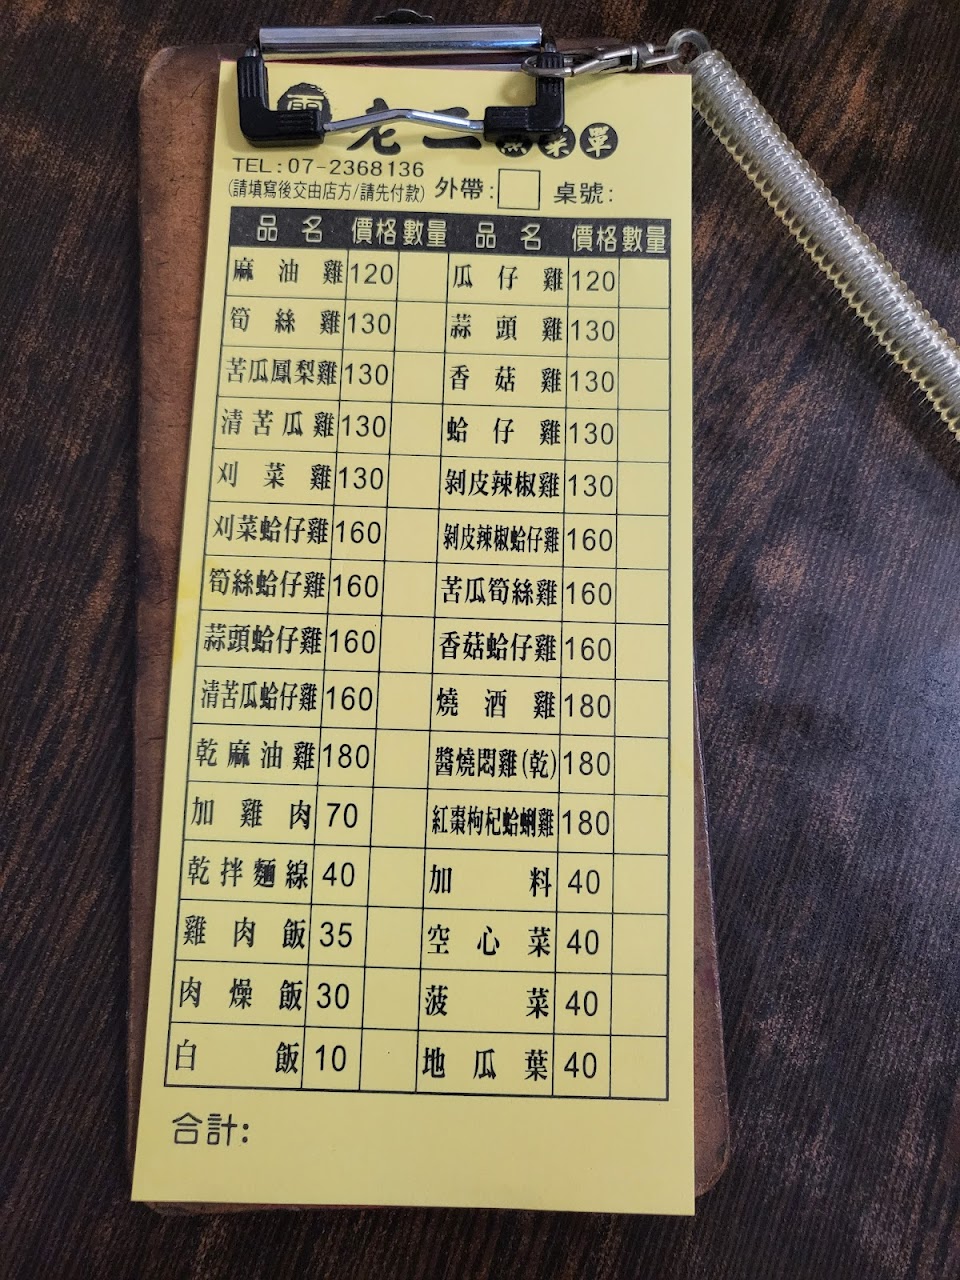 老二 菜單
TEL:07-2368136
(請填寫後交由店方/請先付款) 外帶: 桌號:
品名 價格 數量 品名 價格 數量
麻油雞 120 瓜仔雞 120
筍絲雞 130 蒜頭雞 130
苦瓜鳳梨雞 130 香菇雞 130
清苦瓜雞 130 蛤仔雞 130
刈菜雞 130 剝皮辣椒雞 130
刈菜蛤仔雞 160 剝皮辣椒蛤仔雞 160
筍絲蛤仔雞 160 苦瓜筍絲雞 160
蒜頭蛤仔雞 160 香菇蛤仔雞 160
清苦瓜蛤仔雞 160 燒酒雞 180
乾麻油雞 180 醬燒悶雞(乾) 180
加雞肉 70 紅棗枸杞蛤蜊雞 180
乾拌麵線 40 加料 40
雞肉飯 35 空心菜 40
肉燥飯 30 菠菜 40
白飯 10 地瓜葉 40
合計: